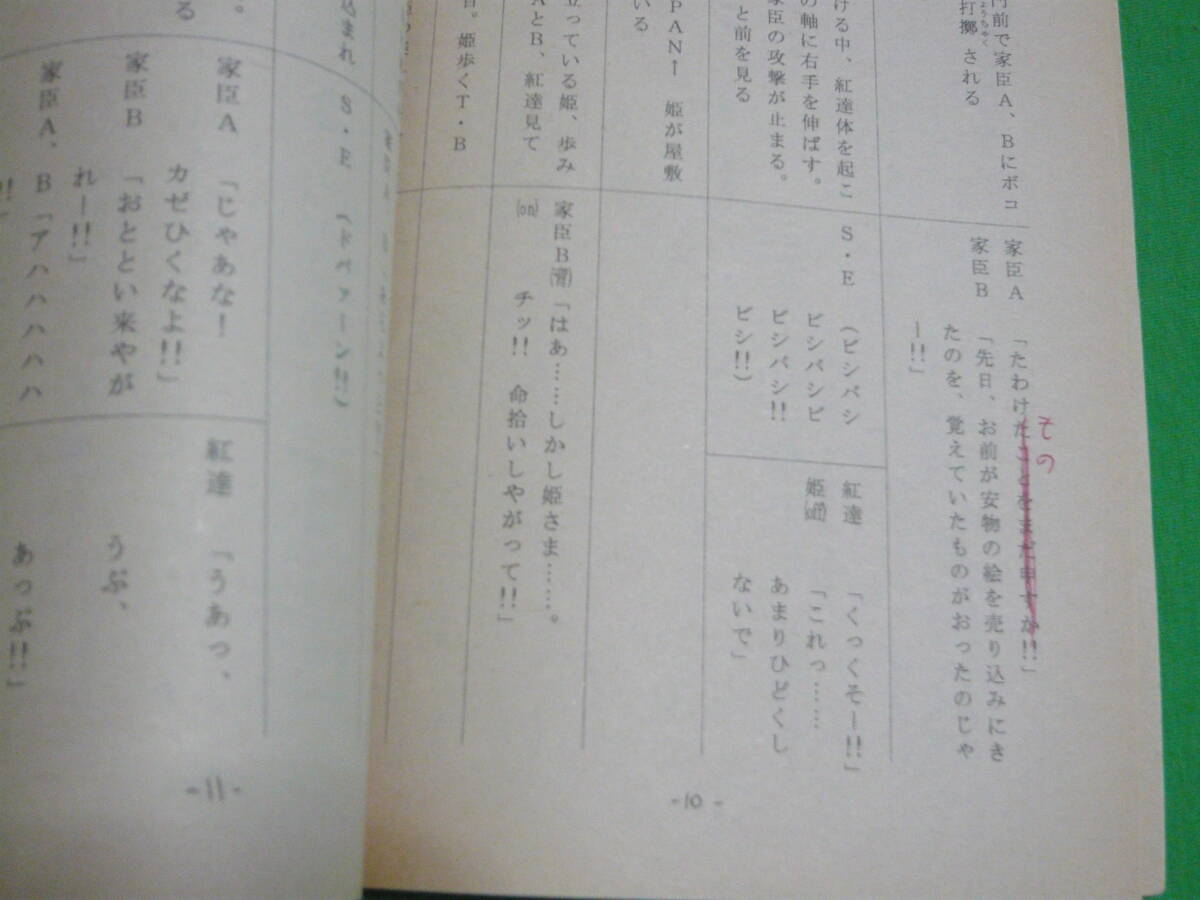 門前で家臣A、Bにボコ
打擲される
ちょうちゃく
家臣A　「たわけたことをまだ申すか!!」
その
家臣B　「先日、お前が安物の絵を売り込みにき
たのを、覚えていたものがおったのじゃ
ー!!」
ける中、紅達体を起こ
の軸に右手を伸ばす。
家臣の攻撃が止まる。
と前を見る
S・E　(ビシバシ
ビシバシビ
シバシ!!
ビシ!!)
紅達　「くっくそー!!」
姫　「これっ……
あまりひどくし
ないで」
PAN↑　姫が屋敷
いる
立っている姫、歩み
AとB、紅達見て
家臣B(背)「はあ……しかし姫さま……。
(on)　チッ!!　命拾いしやがって!!」
姫歩くT・B
-10-
込まれ
る
S・E　(ドバァーン!!)
家臣A　「じゃあな!
カゼひくなよ!!」
家臣B　「おととい来やが
れー!!」
家臣A、B「アハハハハハ
紅達　「うあっ、
うぷ、
あっぷ!!」
-11-